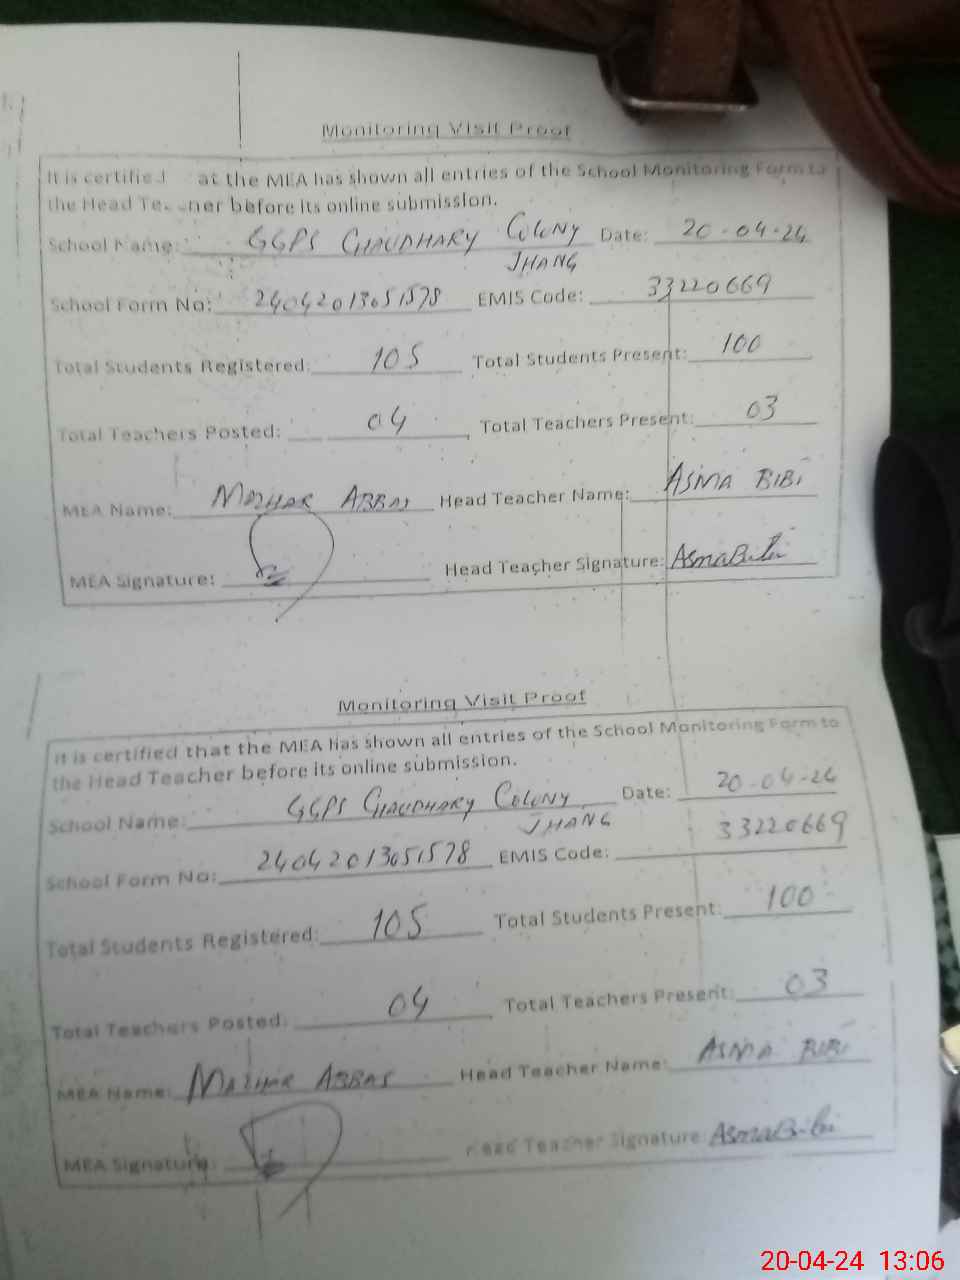 Monitoring Visit Proof
It is certified at the MEA has shown all entries of the School Monitoring Form to
the Head Teacher before its online submission.
School Name: GGPS CHAUDHARY COLONY Date: 20-04-24
JHANG
School Form No: 24042013051578 EMIS Code: 33220669
Total Students Registered: 105 Total Students Present: 100
Total Teachers Posted: 04 Total Teachers Present: 03
MEA Name: MAZHAR ABBAS Head Teacher Name: ASMA BIBI
MEA Signature: Head Teacher Signature: Asma Bibi
Monitoring Visit Proof
It is certified that the MEA has shown all entries of the School Monitoring Form to
the Head Teacher before its online submission.
School Name: GGPS CHAUDHARY COLONY Date: 20-04-24
JHANG
School Form No: 24042013051578 EMIS Code: 33220669
Total Students Registered: 105 Total Students Present: 100
Total Teachers Posted: 04 Total Teachers Present: 03
MEA Name: MAZHAR ABBAS Head Teacher Name: ASMA BIBI
MEA Signature: Head Teacher Signature: Asma Bibi
20-04-24 13:06